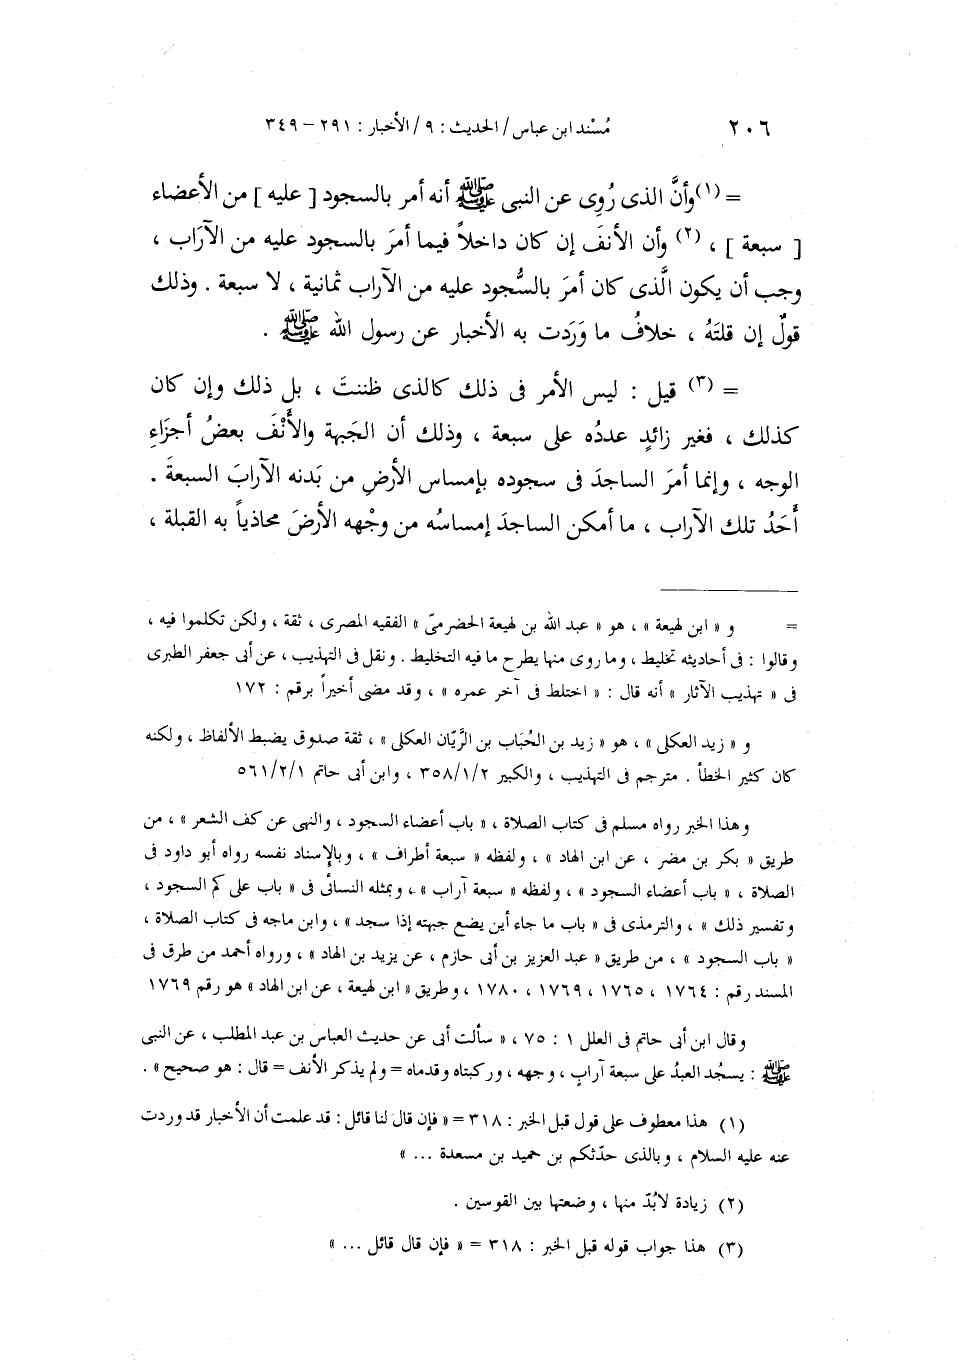 ٢٠٦ مُسْند ابن عباس / الحديث : ٩ / الأخبار : ٢٩١ - ٣٤٩
= (١) وأنَّ الذى رُوِى عن النبى ﷺ أنه أمر بالسجود [ عليه ] من الأعضاء
[ سبعة ] ، (٢) وأن الأنفَ إن كان داخلاً فيما أمرَ بالسجود عليه من الآرَاب ،
وجب أن يكون الَّذى كان أمرَ بالسُّجود عليه من الآراب ثمانية ، لا سبعة . وذلك
قولٌ إن قلتَهُ ، خلافُ ما وَرَدت به الأخبار عن رسول الله ﷺ .
= (٣) قيل : ليس الأمر فى ذلك كالذى ظننتَ ، بل ذلك وإن كان
كذلك ، فغير زائدٍ عددُه على سبعة ، وذلك أن الجَبهة والأَنْفَ بعضُ أجزَاءِ
الوجه ، وإنما أمرَ الساجدَ فى سجوده بإمساس الأرضِ من بَدنه الآرابَ السبعةَ .
أَحَدُ تلك الآراب ، ما أمكن الساجدَ إمساسُه من وجْهه الأرضَ محاذياً به القبلة ،
= و « ابن لهيعة » ، هو « عبد الله بن لهيعة الحضرمىّ » الفقيه المصرى ، ثقة ، ولكن تكلموا فيه ،
وقالوا : فى أحاديثه تخليط ، وما روى منها يطرح ما فيه التخليط . ونقل فى التهذيب ، عن أبى جعفر الطبرى
فى « تهذيب الآثار » أنه قال : « اختلط فى آخر عمره » ، وقد مضى أخيراً برقم : ١٧٢
و « زيد العكلى » ، هو « زيد بن الحُبَاب بن الرَّيّان العكلى » ، ثقة صدوق يضبط الألفاظ ، ولكنه
كان كثير الخطأ . مترجم فى التهذيب ، والكبير ٣٥٨/١/٢ ، وابن أبى حاتم ٥٦١/٢/١
وهذا الخبر رواه مسلم فى كتاب الصلاة ، « باب أعضاء السجود ، والنهى عن كف الشعر » ، من
طريق « بكر بن مضر ، عن ابن الهاد » ، ولفظه « سبعة أطراف » ، وبالإسناد نفسه رواه أبو داود فى
الصلاة ، « باب أعضاء السجود » ، ولفظه « سبعة آراب » ، وبمثله النسائى فى « باب على كم السجود ،
وتفسير ذلك » ، والترمذى فى « باب ما جاء أين يضع جبهته إذا سجد » ، وابن ماجه فى كتاب الصلاة ،
« باب السجود » ، من طريق « عبد العزيز بن أبى حازم ، عن يزيد بن الهاد » ، ورواه أحمد من طرق فى
المسند رقم : ١٧٦٤ ، ١٧٦٥ ، ١٧٦٩ ، ١٧٨٠ ، وطريق « ابن لهيعة ، عن ابن الهاد » هو رقم ١٧٦٩
وقال ابن أبى حاتم فى العلل ١ : ٧٥ ، « سألت أبى عن حديث العباس بن عبد المطلب ، عن النبى
ﷺ : يسجُد العبدُ على سبعة آرابٍ ، وجهه ، وركبتاه وقدماه = ولم يذكر الأنف = قال : هو صحيح » .
(١) هذا معطوف على قول قبل الخبر : ٣١٨ = « فإن قال لنا قائل : قد علمت أن الأخبار قد وردت
عنه عليه السلام ، وبالذى حدّثكم بن حميد بن مسعدة ... »
(٢) زيادة لابُدّ منها ، وضعتها بين القوسين .
(٣) هذا جواب قوله قبل الخبر : ٣١٨ = « فإن قال قائل ... »